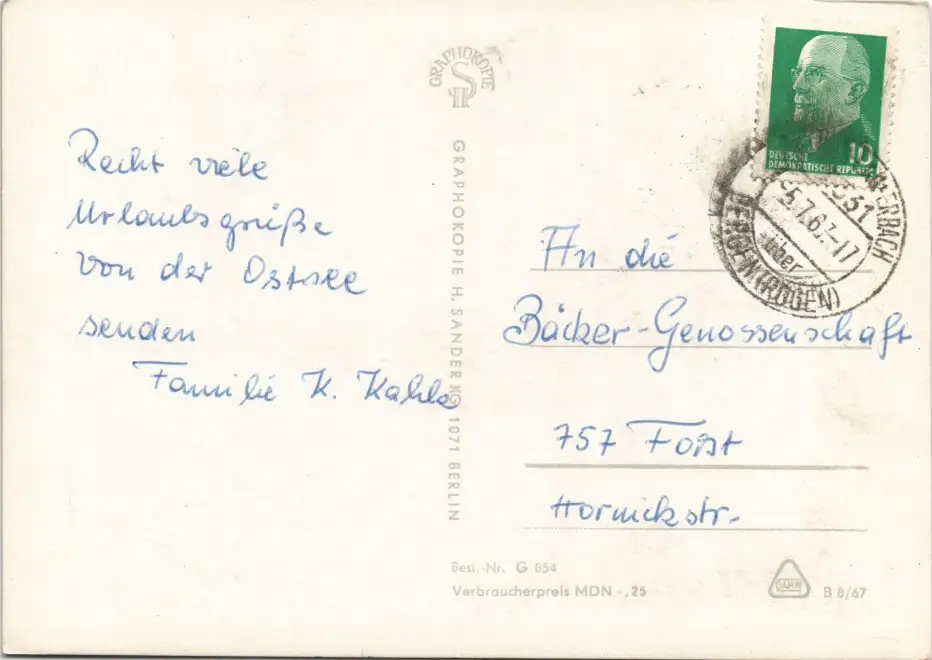 Recht viele
Urlaubsgrüße
von der Ostsee
senden
Familie K. Kahle
GRAPHOKOPIE
GRAPHOKOPIE H. SANDER KG 1071 BERLIN
DEUTSCHE
DEMOKRATISCHE REPUBLIK
10
2351
5.7.67.-17
über
BERGEN (RÜGEN)
An die
Bäcker-Genossenschaft
757 Forst
Hornickstr.
Best.-Nr. G 854
Verbraucherpreis MDN -,25
B 8/67